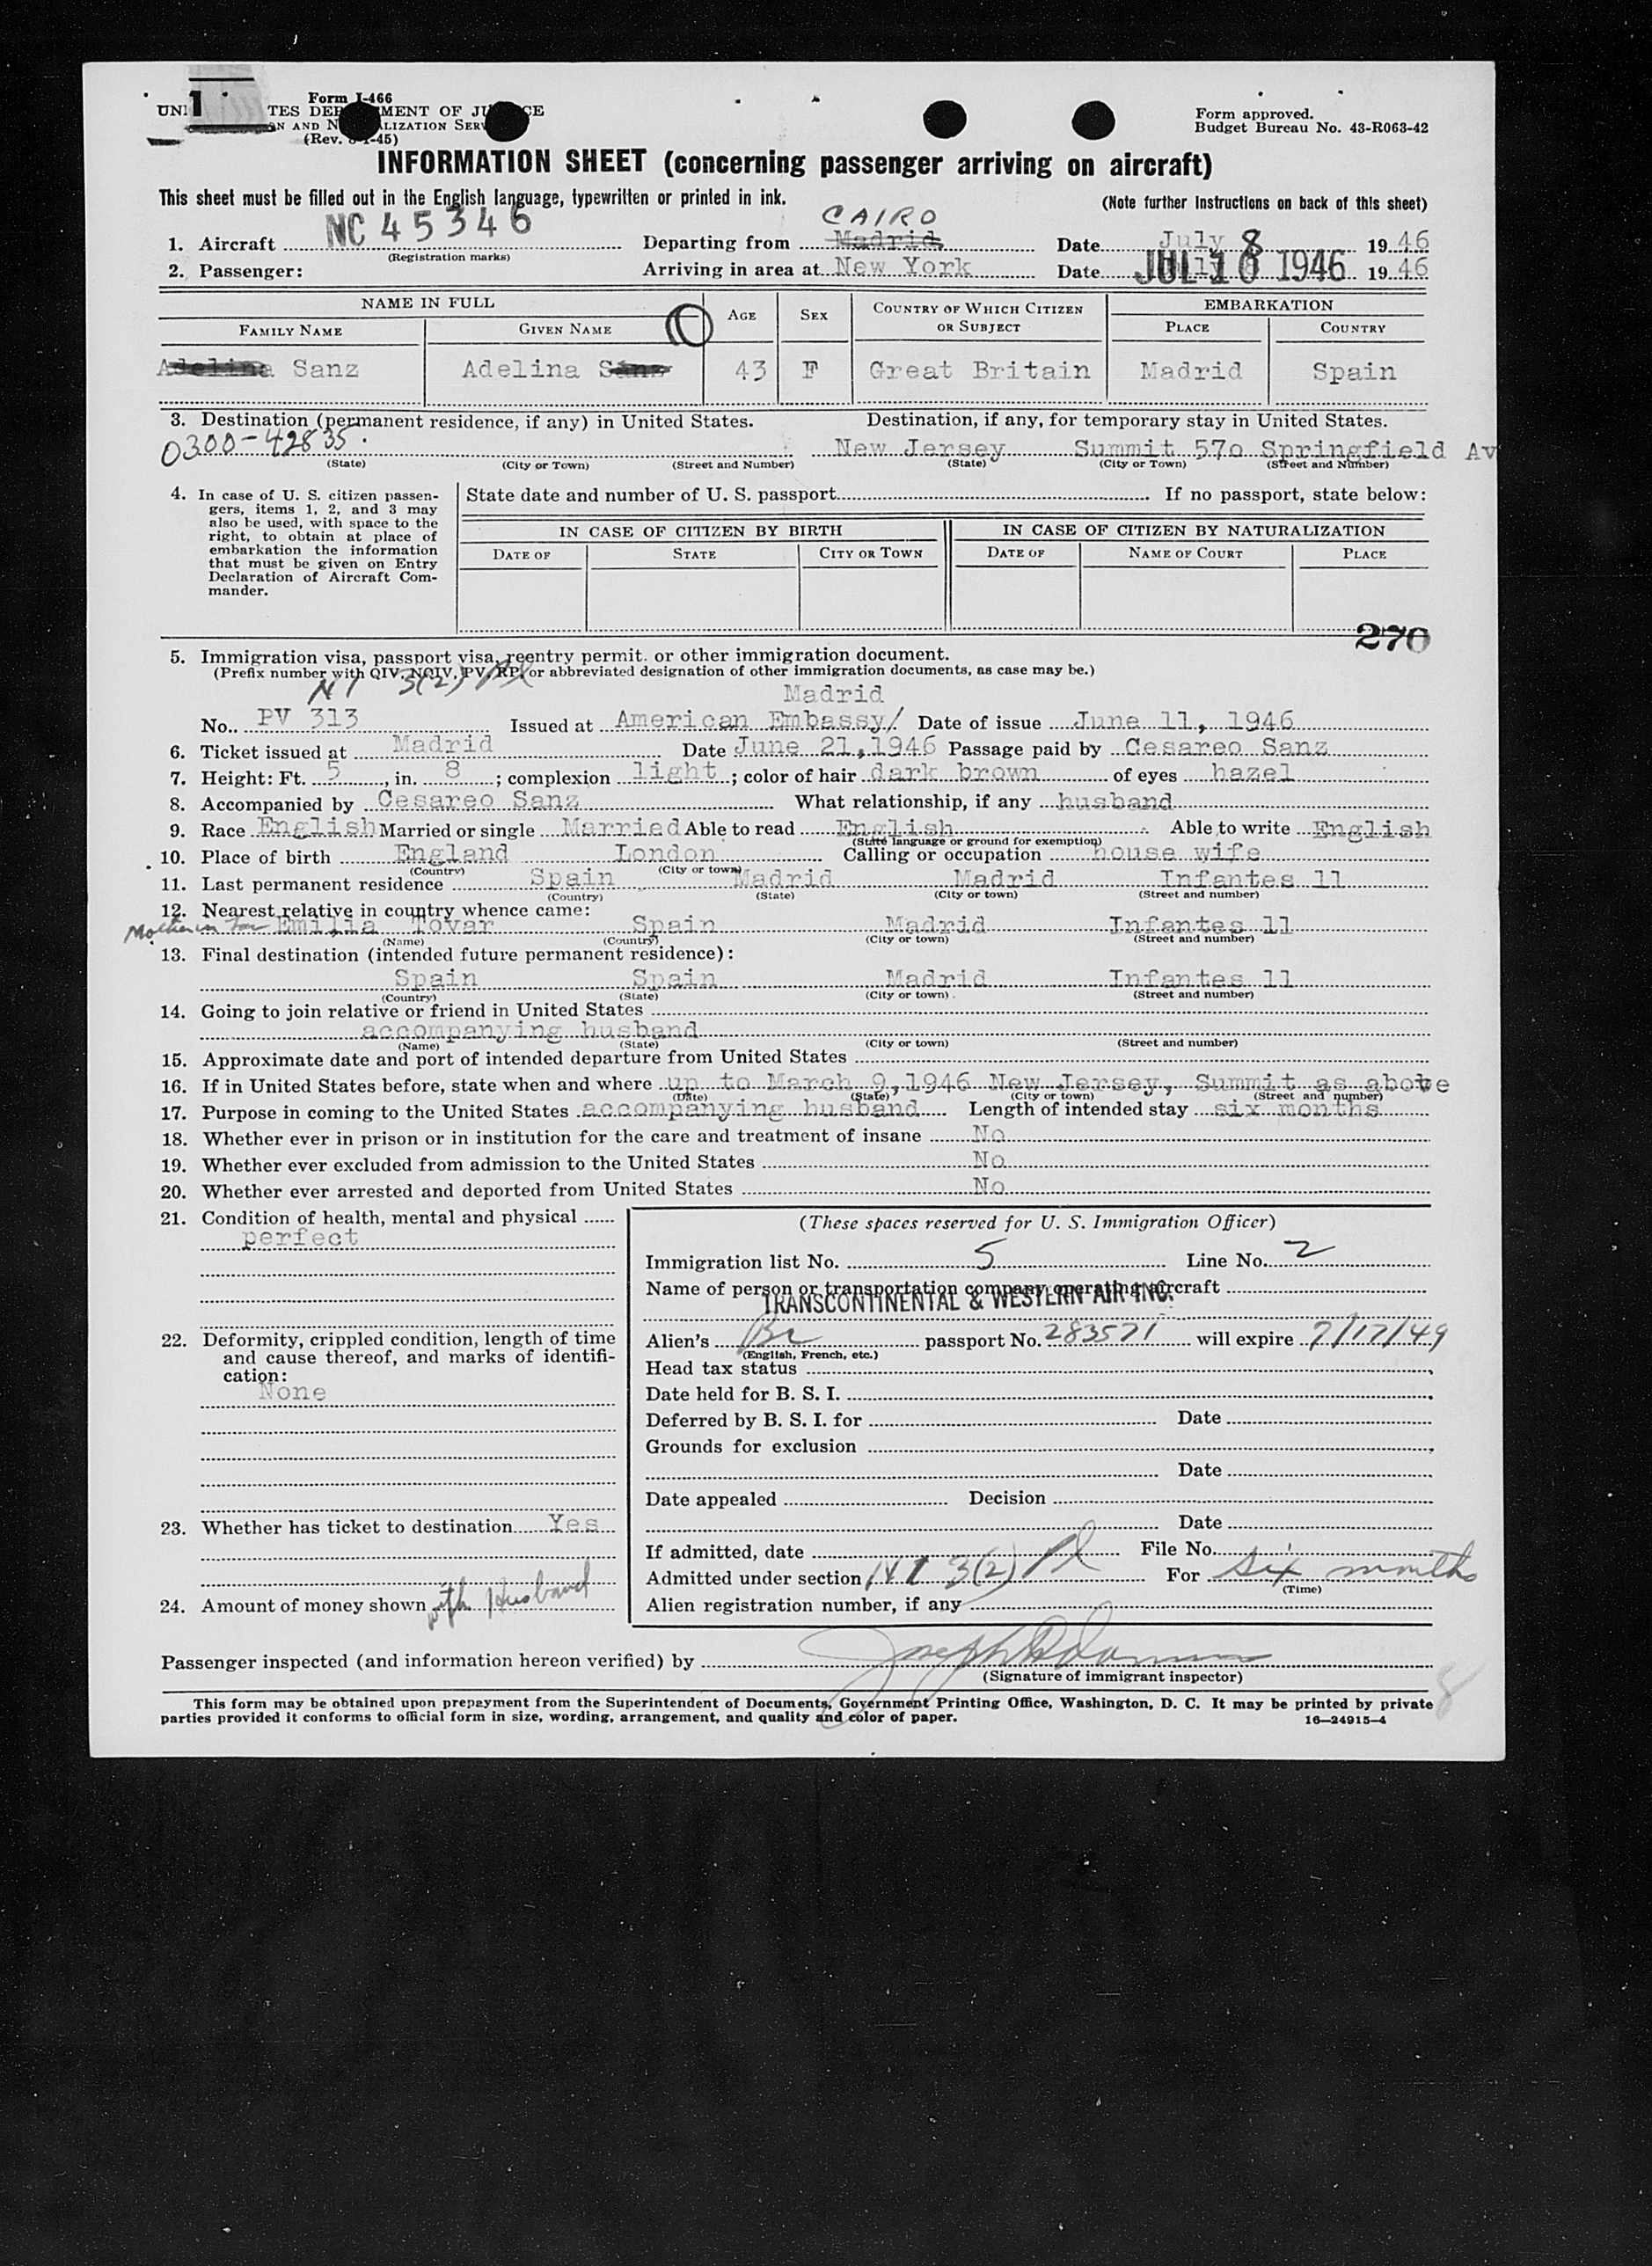 1
Form I-466
UNI TES DEP MENT OF JU CE
ON AND N LIZATION SERV
(Rev. -45)
Form approved.
Budget Bureau No. 43-R063-42
INFORMATION SHEET (concerning passenger arriving on aircraft)
This sheet must be filled out in the English language, typewritten or printed in ink.
(Note further Instructions on back of this sheet)
NC 45346
CAIRO
1. Aircraft Departing from Madrid Date July 8 19 46
(Registration marks)
2. Passenger: Arriving in area at New York Date JUL 10 1946 19 46
NAME IN FULL
FAMILY NAME GIVEN NAME AGE SEX COUNTRY OF WHICH CITIZEN OR SUBJECT EMBARKATION PLACE COUNTRY
Adelina Sanz Adelina Sanz 43 F Great Britain Madrid Spain
3. Destination (permanent residence, if any) in United States. Destination, if any, for temporary stay in United States.
0300-42835 New Jersey Summit 570 Springfield Av
(State) (City or Town) (Street and Number) (State) (City or Town) (Street and Number)
4. In case of U. S. citizen passengers, items 1, 2, and 3 may also be used, with space to the right, to obtain at place of embarkation the information that must be given on Entry Declaration of Aircraft Commander.
State date and number of U. S. passport If no passport, state below:
IN CASE OF CITIZEN BY BIRTH IN CASE OF CITIZEN BY NATURALIZATION
DATE OF STATE CITY OR TOWN DATE OF NAME OF COURT PLACE
270
5. Immigration visa, passport visa, reentry permit. or other immigration document.
(Prefix number with QIV, NQIV, PV, RP, or abbreviated designation of other immigration documents, as case may be.)
3(2)
Madrid
No. PV 313 Issued at American Embassy/ Date of issue June 11, 1946
6. Ticket issued at Madrid Date June 21,1946 Passage paid by Cesareo Sanz
7. Height: Ft. 5, in. 8; complexion light; color of hair dark brown of eyes hazel
8. Accompanied by Cesareo Sanz What relationship, if any husband
9. Race English Married or single Married Able to read English Able to write English
(State language or ground for exemption)
10. Place of birth England London Calling or occupation house wife
(Country) (City or town)
11. Last permanent residence Spain Madrid Madrid Infantes 11
(Country) (State) (City or town) (Street and number)
12. Nearest relative in country whence came:
Mother in law Emilia Tovar Spain Madrid Infantes 11
(Name) (Country) (City or town) (Street and number)
13. Final destination (intended future permanent residence):
Spain Spain Madrid Infantes 11
(Country) (State) (City or town) (Street and number)
14. Going to join relative or friend in United States
accompanying husband
(Name) (State) (City or town) (Street and number)
15. Approximate date and port of intended departure from United States
16. If in United States before, state when and where up to March 9,1946 New Jersey, Summit as above
(Date) (State) (City or town) (Street and number)
17. Purpose in coming to the United States accompanying husband Length of intended stay six months
18. Whether ever in prison or in institution for the care and treatment of insane No
19. Whether ever excluded from admission to the United States No
20. Whether ever arrested and deported from United States No
21. Condition of health, mental and physical
perfect
22. Deformity, crippled condition, length of time and cause thereof, and marks of identification:
None
23. Whether has ticket to destination Yes
24. Amount of money shown with Husband
(These spaces reserved for U. S. Immigration Officer)
Immigration list No. 5 Line No. 2
Name of person or transportation company operating aircraft
TRANSCONTINENTAL & WESTERN AIR INC.
Alien's Br passport No. 283571 will expire 7/17/49
(English, French, etc.)
Head tax status
Date held for B. S. I.
Deferred by B. S. I. for Date
Grounds for exclusion
Date
Date appealed Decision
Date
If admitted, date File No.
Admitted under section 3(2) For six months
(Time)
Alien registration number, if any
Passenger inspected (and information hereon verified) by
(Signature of immigrant inspector)
This form may be obtained upon prepayment from the Superintendent of Documents, Government Printing Office, Washington, D. C. It may be printed by private
parties provided it conforms to official form in size, wording, arrangement, and quality and color of paper.
16—24915-4
8